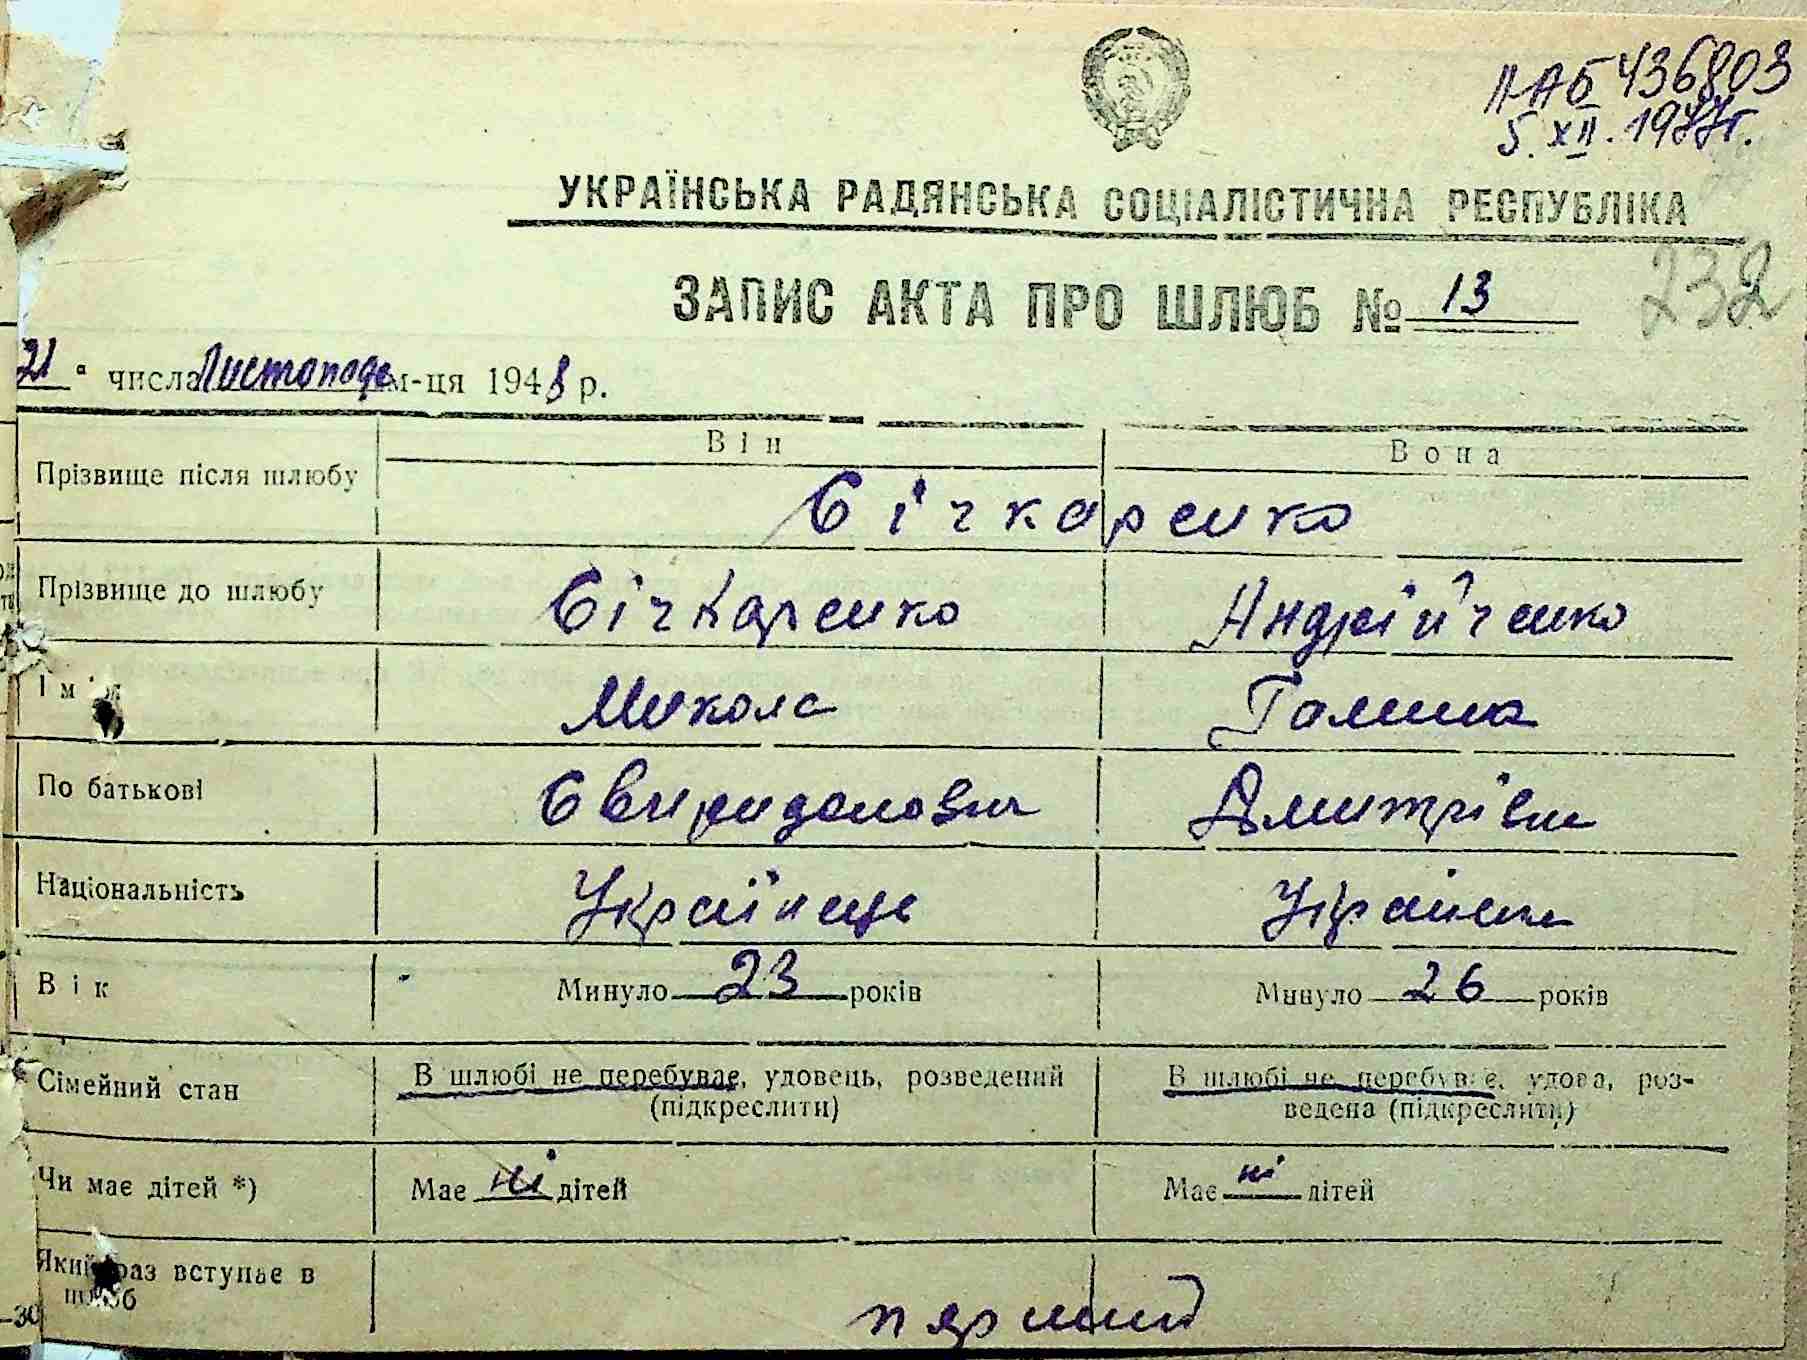 II-АБ 436803
5. XII. 1977г.
УКРАЇНСЬКА РАДЯНСЬКА СОЦІАЛІСТИЧНА РЕСПУБЛІКА
232
ЗАПИС АКТА ПРО ШЛЮБ № 13
21 " числа Листопада м-ця 1948 р.
Він Вона
Прізвище після шлюбу Січкаренко
Прізвище до шлюбу Січкаренко Андрійченко
Ім'я Микола Галина
По батькові Свиридонович Дмитрівна
Національність Українець Українка
Вік Минуло 23 років Минуло 26 років
Сімейний стан В шлюбі не перебуває, удовець, розведений (підкреслити) В шлюбі не перебуває, удова, роз-
ведена (підкреслити)
Чи має дітей *) Має ні дітей Має ні дітей
Який раз вступає в
шлюб перший
-30